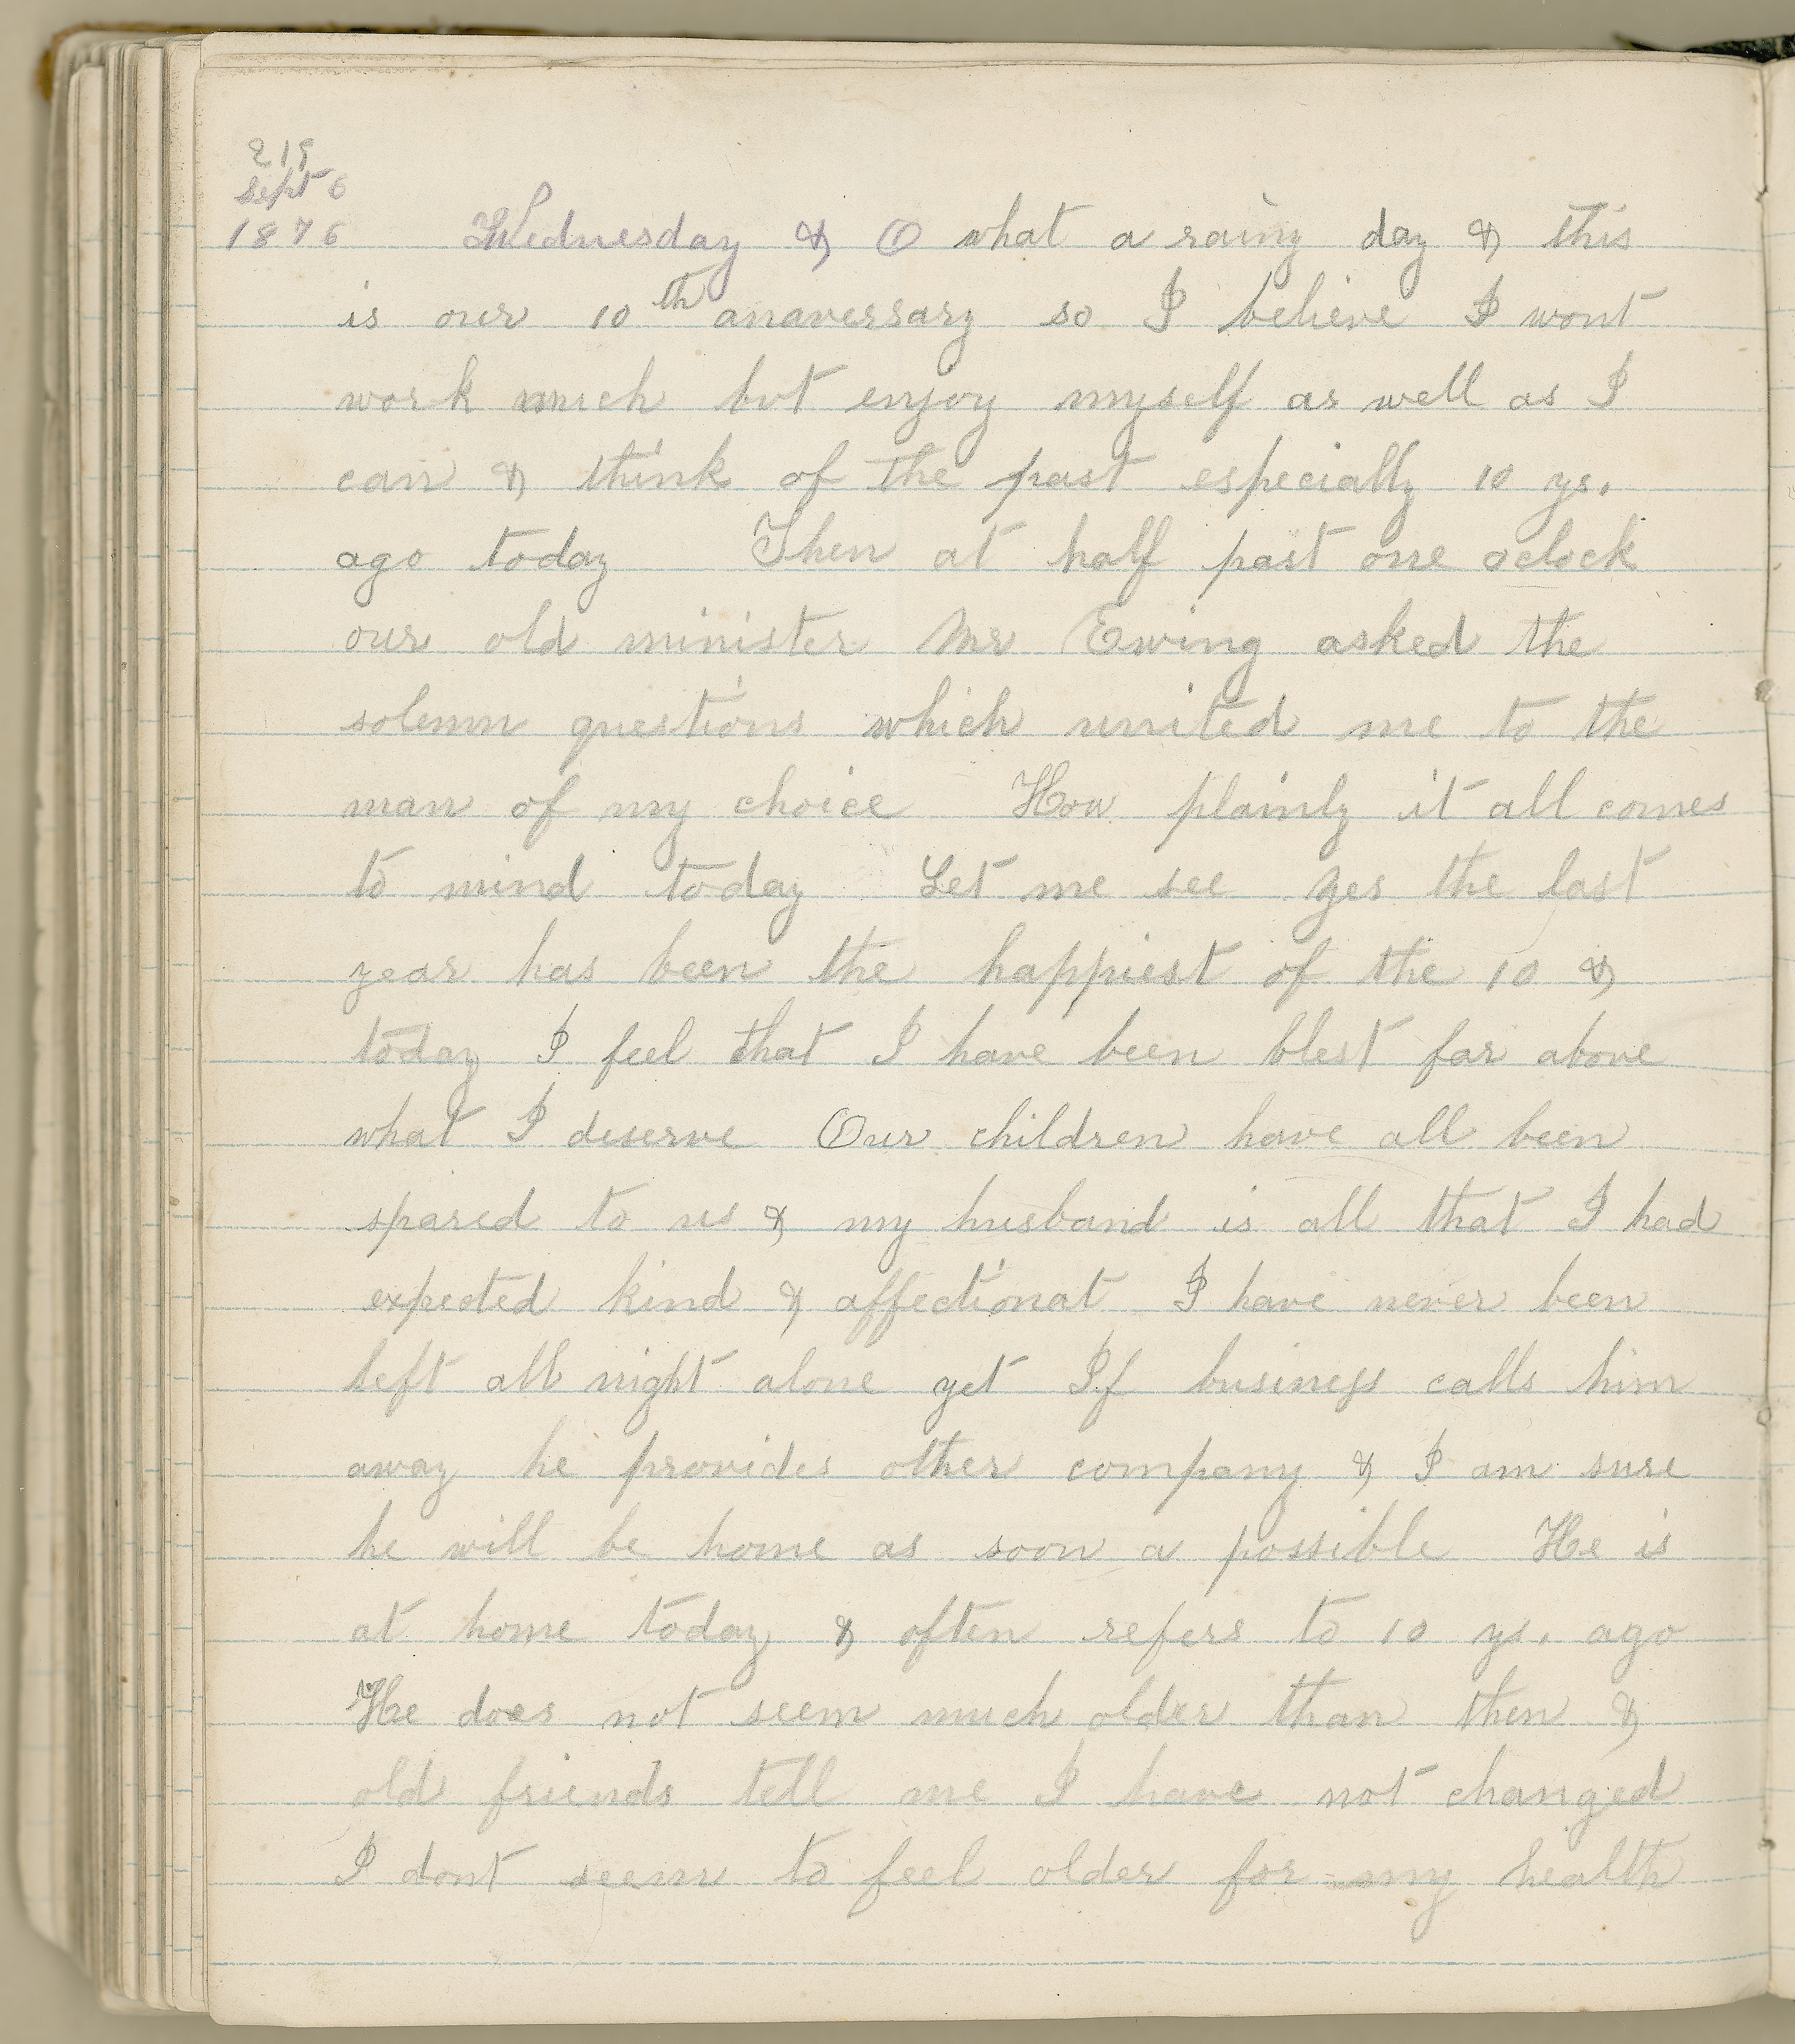 219
Sept 6
1876 Wednesday & O what a rainy day & this
is our 10th anaversary so I believe I wont
work much but enjoy myself as well as I
can & think of the past especially 10 ys.
ago today Then at half past one oclock
our old minister Mr Ewing asked the
solemn questions which united me to the
man of my choice How plainly it all comes
to mind today Let me see yes the last
year has been the happiest of the 10 &
today I feel that I have been blest far above
what I deserve Our children have all been
spared to us & my husband is all that I had
expected kind & affectionat I have never been
left all night alone yet If business calls him
away he provides other company & I am sure
he will be home as soon a possible He is
at home today & often refers to 10 ys. ago
He does not seem much older than then &
old friends tell me I have not changed
I dont seem to feel older for my health